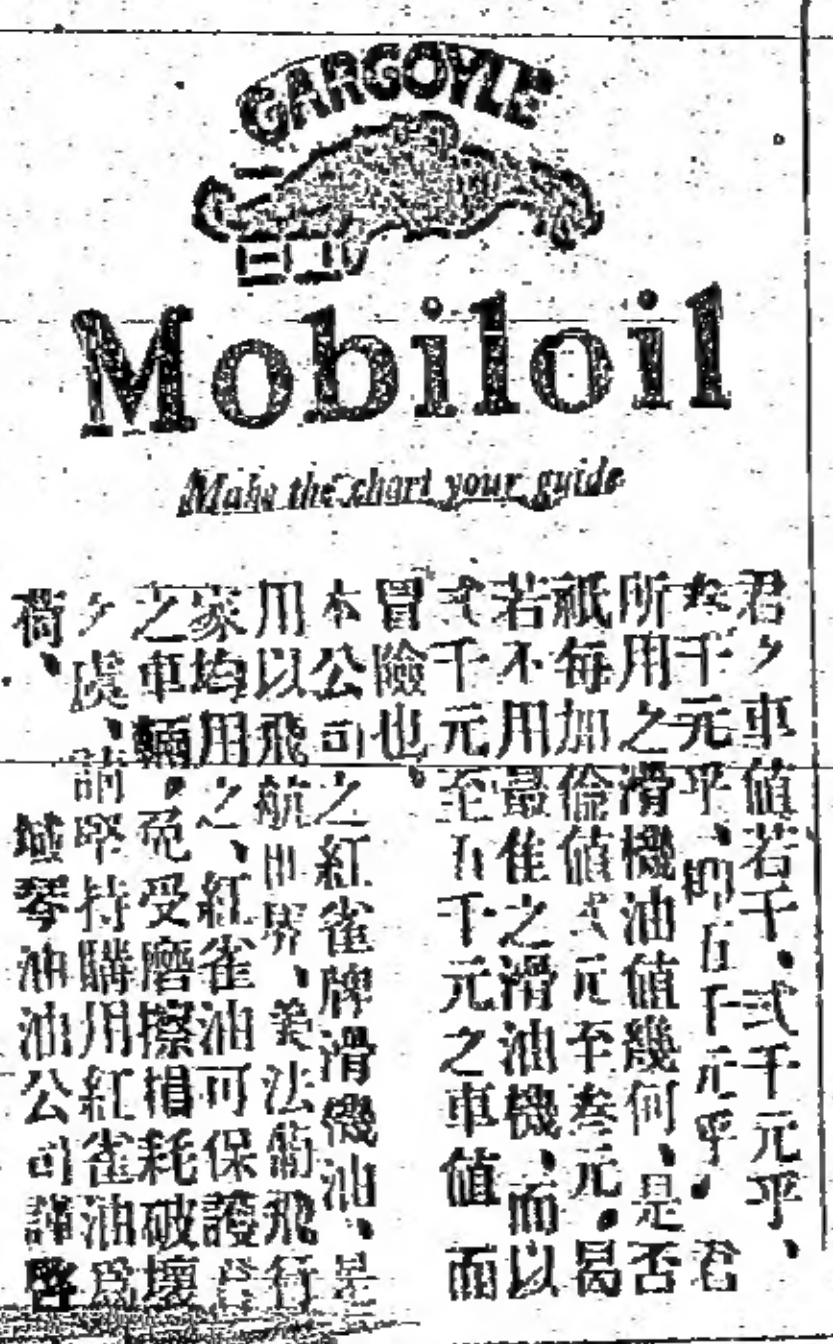 GARGOYLE
Mobiloil
Make the chart your guide
君夕車值若干、弍千元乎、
叁千元乎、抑五千元乎。君
所用之滑機油值幾何、是否
祇每加倫值弍元至叁元。曷
若不用最佳之滑油機、而以
弍千元至五千元之車值而
冒險也、
本公司之紅雀牌滑機油、是
用以飛航世界、美法葡飛行
家均用之、紅雀油可保護君
之車輛。免受磨擦損耗破壞
夕虞、請堅持購用紅雀油爲
荷、 域琴油油公司謹啓